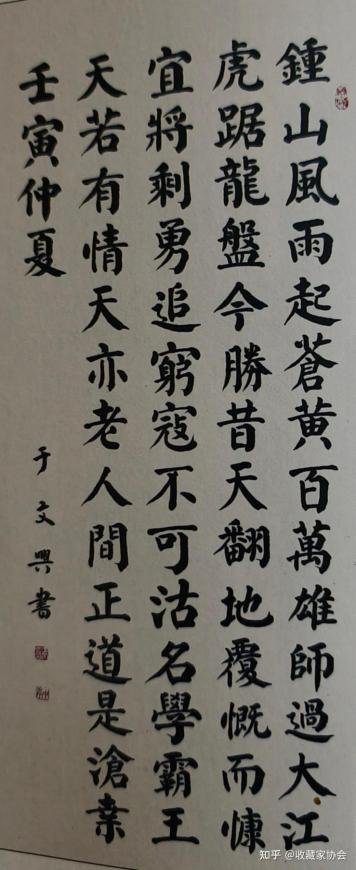 鍾山風雨起蒼黄百萬雄師過大江
虎踞龍盤今勝昔天翻地覆慨而慷
宜將剩勇追窮寇不可沽名學霸王
天若有情天亦老人間正道是滄桒
壬寅仲夏
于文興書
知乎 @收藏家协会